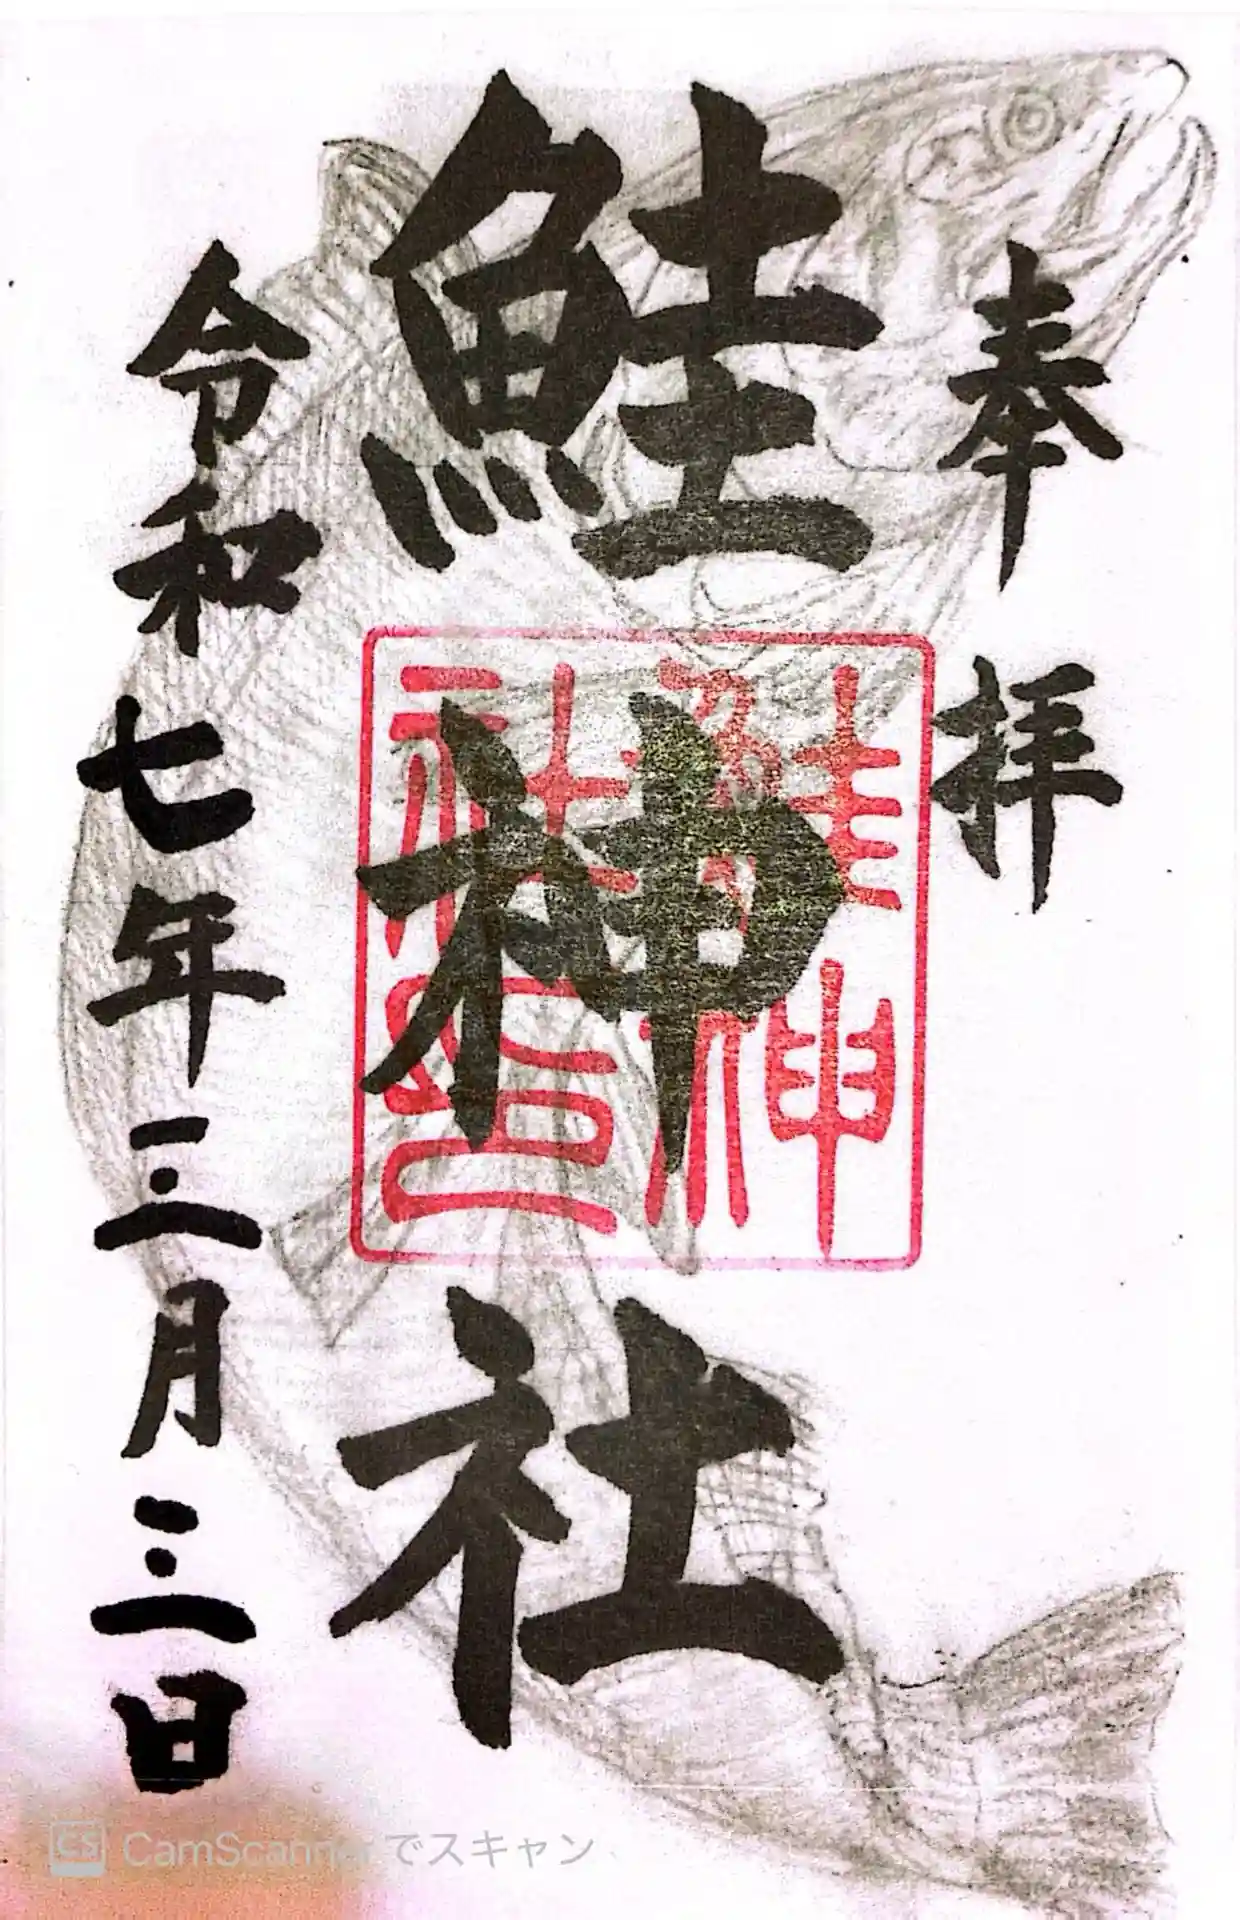 奉拝
鮭神社
鮭神
社印
令和七年三月三日
CS CamScannerでスキャン